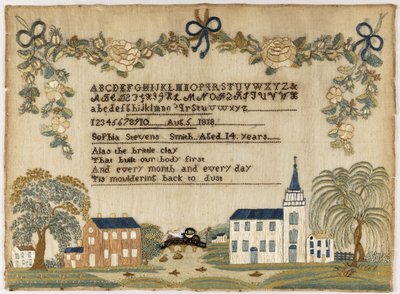 ABCDEFGHIJKLMNOPQRSTUVWXYZ&
abcdefghijklmno
12345678910 Aug. 5 1818
Sophia Stevens Smith, Aged 14 years
Alas the brittle clay
That built our body first
And every month and every day
Tis mouldering back to dust